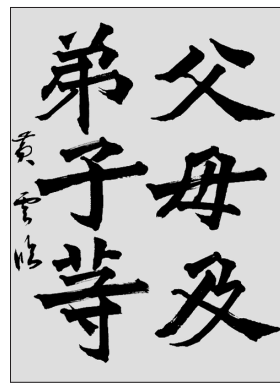 父母及
弟子等
黄云临